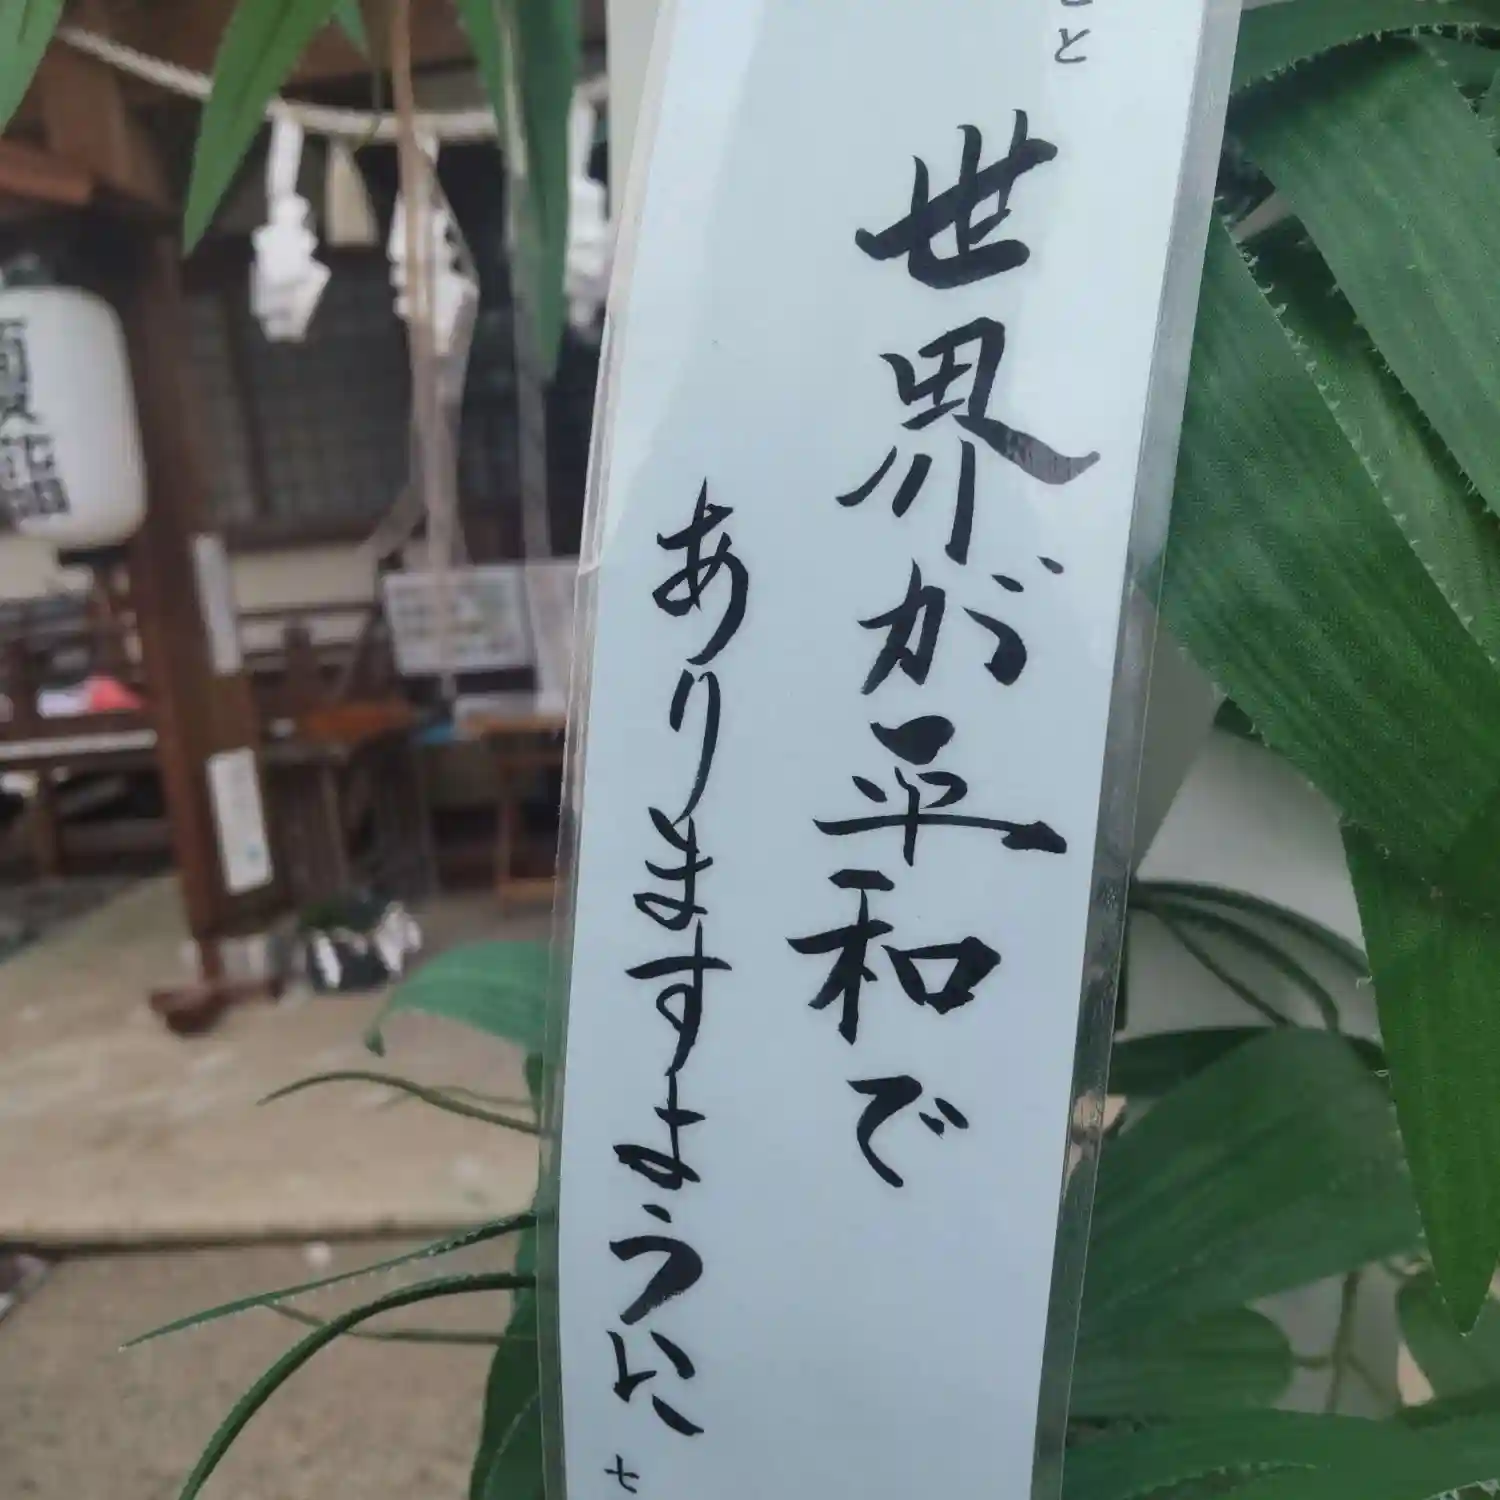 と
世界が平和で
ありますように
七